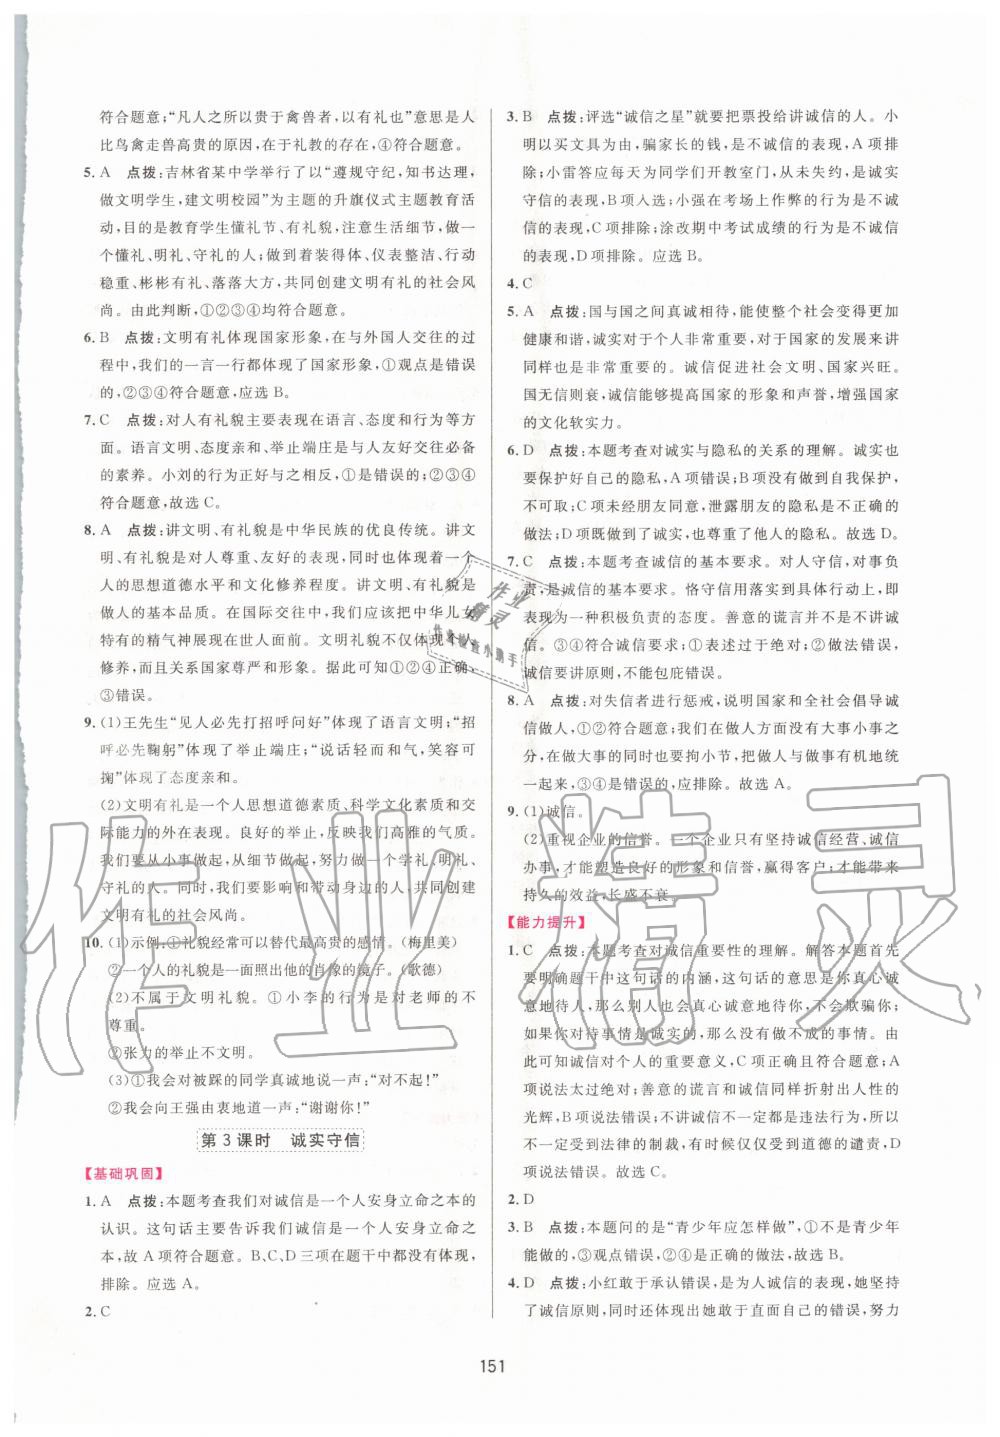 符合题意;“凡人之所以贵于禽兽者,以有礼也”意思是人
比鸟禽走兽高贵的原因,在于礼教的存在,④符合题意。
5. A 点拨:吉林省某中学举行了以“遵规守纪,知书达理,
做文明学生,建文明校园”为主题的升旗仪式主题教育活
动,目的是教育学生懂礼节、有礼貌,注意生活细节,做一
个懂礼、明礼、守礼的人,做到着装得体、仪表整洁、行动
稳重、彬彬有礼、落落大方,共同创建文明有礼的社会风
尚。由此判断,①②③④均符合题意。
6. B 点拨:文明有礼体现国家形象,在与外国人交往的过
程中,我们的一言一行都体现了国家形象,①观点是错误
的,②③④符合题意,应选 B。
7. C 点拨:对人有礼貌主要表现在语言、态度和行为等方
面。语言文明、态度亲和、举止端庄是与人友好交往必备
的素养。小刘的行为正好与之相反,①是错误的;②③④
符合题意,故选 C。
8. A 点拨:讲文明、有礼貌是中华民族的优良传统。讲文
明、有礼貌是对人尊重、友好的表现,同时也体现了一个
人的思想道德水平和文化修养程度。讲文明、有礼貌是
做人的基本品质。在国际交往中,我们应该把中华儿女
特有的精气神展现在世人面前。文明礼貌不仅体现个人
修养,而且关系国家尊严和形象。据此可知①②④正确,
③错误。
9. (1)王先生“见人必先打招呼问好”体现了语言文明;“招
呼必先鞠躬”体现了举止端庄;“说话轻而和气,笑容可
掬”体现了态度亲和。
(2)文明有礼是一个人思想道德素质、科学文化素质和交
际能力的外在表现。良好的举止,反映我们高雅的气质。
我们要从小事做起,从细节做起,努力做一个学礼、明礼、
守礼的人。同时,我们要影响和带动身边的人,共同创建
文明有礼的社会风尚。
10. (1)示例:①礼貌经常可以替代最高贵的感情。(梅里美)
②一个人的礼貌是一面照出他的肖像的镜子。(歌德)
(2)不属于文明礼貌。①小李的行为是对老师的不
尊重。
②张力的举止不文明。
(3)①我会对被踩的同学真诚地说一声:“对不起!”
②我会向王强由衷地道一声:“谢谢你!”
第 3 课时 诚实守信
【基础巩固】
1. A 点拨:本题考查我们对诚信是一个人安身立命之本的
认识。这句话主要告诉我们诚信是一个人安身立命之
本,故 A 项符合题意。B、C、D 三项在题干中都没有体现,
排除。应选 A。
2. C
3. B 点拨:评选“诚信之星”就要把票投给讲诚信的人。小
明以买文具为由,骗家长的钱,是不诚信的表现,A 项排
除;小雷答应每天为同学们开教室门,从未失约,是诚实
守信的表现,B 项入选;小强在考场上作弊的行为是不诚
信的表现,C 项排除;涂改期中考试成绩的行为是不诚信
的表现,D 项排除。故选 B。
4. C
5. A 点拨:国与国之间真诚相待,能使整个社会变得更加
健康和谐,诚实对于个人非常重要,对于国家的发展来讲
同样也是非常重要的。诚信促进社会文明、国家兴旺。
国无信则衰,诚信能够提高国家的形象和声誉,增强国家
的文化软实力。
6. D 点拨:本题考查对诚实与隐私的关系的理解。诚实也
要保护好自己的隐私,A 项错误;B 项没有做到自我保护,
不可取;C 项未经朋友同意,泄露朋友的隐私,是不正确的
做法;D 项既做到了诚实,也尊重了他人的隐私。故选 D。
7. C 点拨:本题考查诚信的基本要求。对人守信,对事负
责,是诚信的基本要求。恪守信用落实到具体行动上,即
表现为一种积极负责的态度。善意的谎言并不是不讲诚
信。①④符合诚信要求;③表述过于绝对;②做法错误,
诚信要讲原则,不能包庇错误。
8. A 点拨:对失信者进行惩戒,说明国家和全社会倡导诚
信做人,①②符合题意;我们在做人方面没有大事小事之
分,在做大事的同时也要拘小节,把做人与做事有机地统
一起来,③④是错误的,应排除。故选 A。
9. (1)诚信。
(2)重视企业的信誉。一个企业只有坚持诚信经营、诚信
办事,才能塑造良好的形象和信誉,赢得客户;才能带来
持久的效益,长盛不衰。
【能力提升】
1. C 点拨:本题考查对诚信重要性的理解。解答本题首先
要明确题干中这句话的内涵,这句话的意思是你真心诚
意地待人,那么别人也会真心诚意地待你,不会欺骗你;
如果你对待事情是诚实的,那么没有做不成的事情。由
此可知诚信对个人的重要意义,C 项正确且符合题意;A
项说法太过绝对;善意的谎言和诚信同样折射出人性的
光辉,B 项说法错误;不讲诚信不一定都是违法行为,不一
定都受到法律的制裁,有的受到道德的谴责,D
项说法错误。故选 C。
2. D
3. B 点拨:本题问的是“青少年应怎样做”,①不是青少年
能做的,③观点错误,②④是正确的做法,故选 B。
4. D 点拨:小红敢于承认错误,是为人诚信的表现,她坚持
了诚信原则,同时还体现出她敢于直面自己的错误,努力
151
作业精灵
作业精灵
作业检查小助手